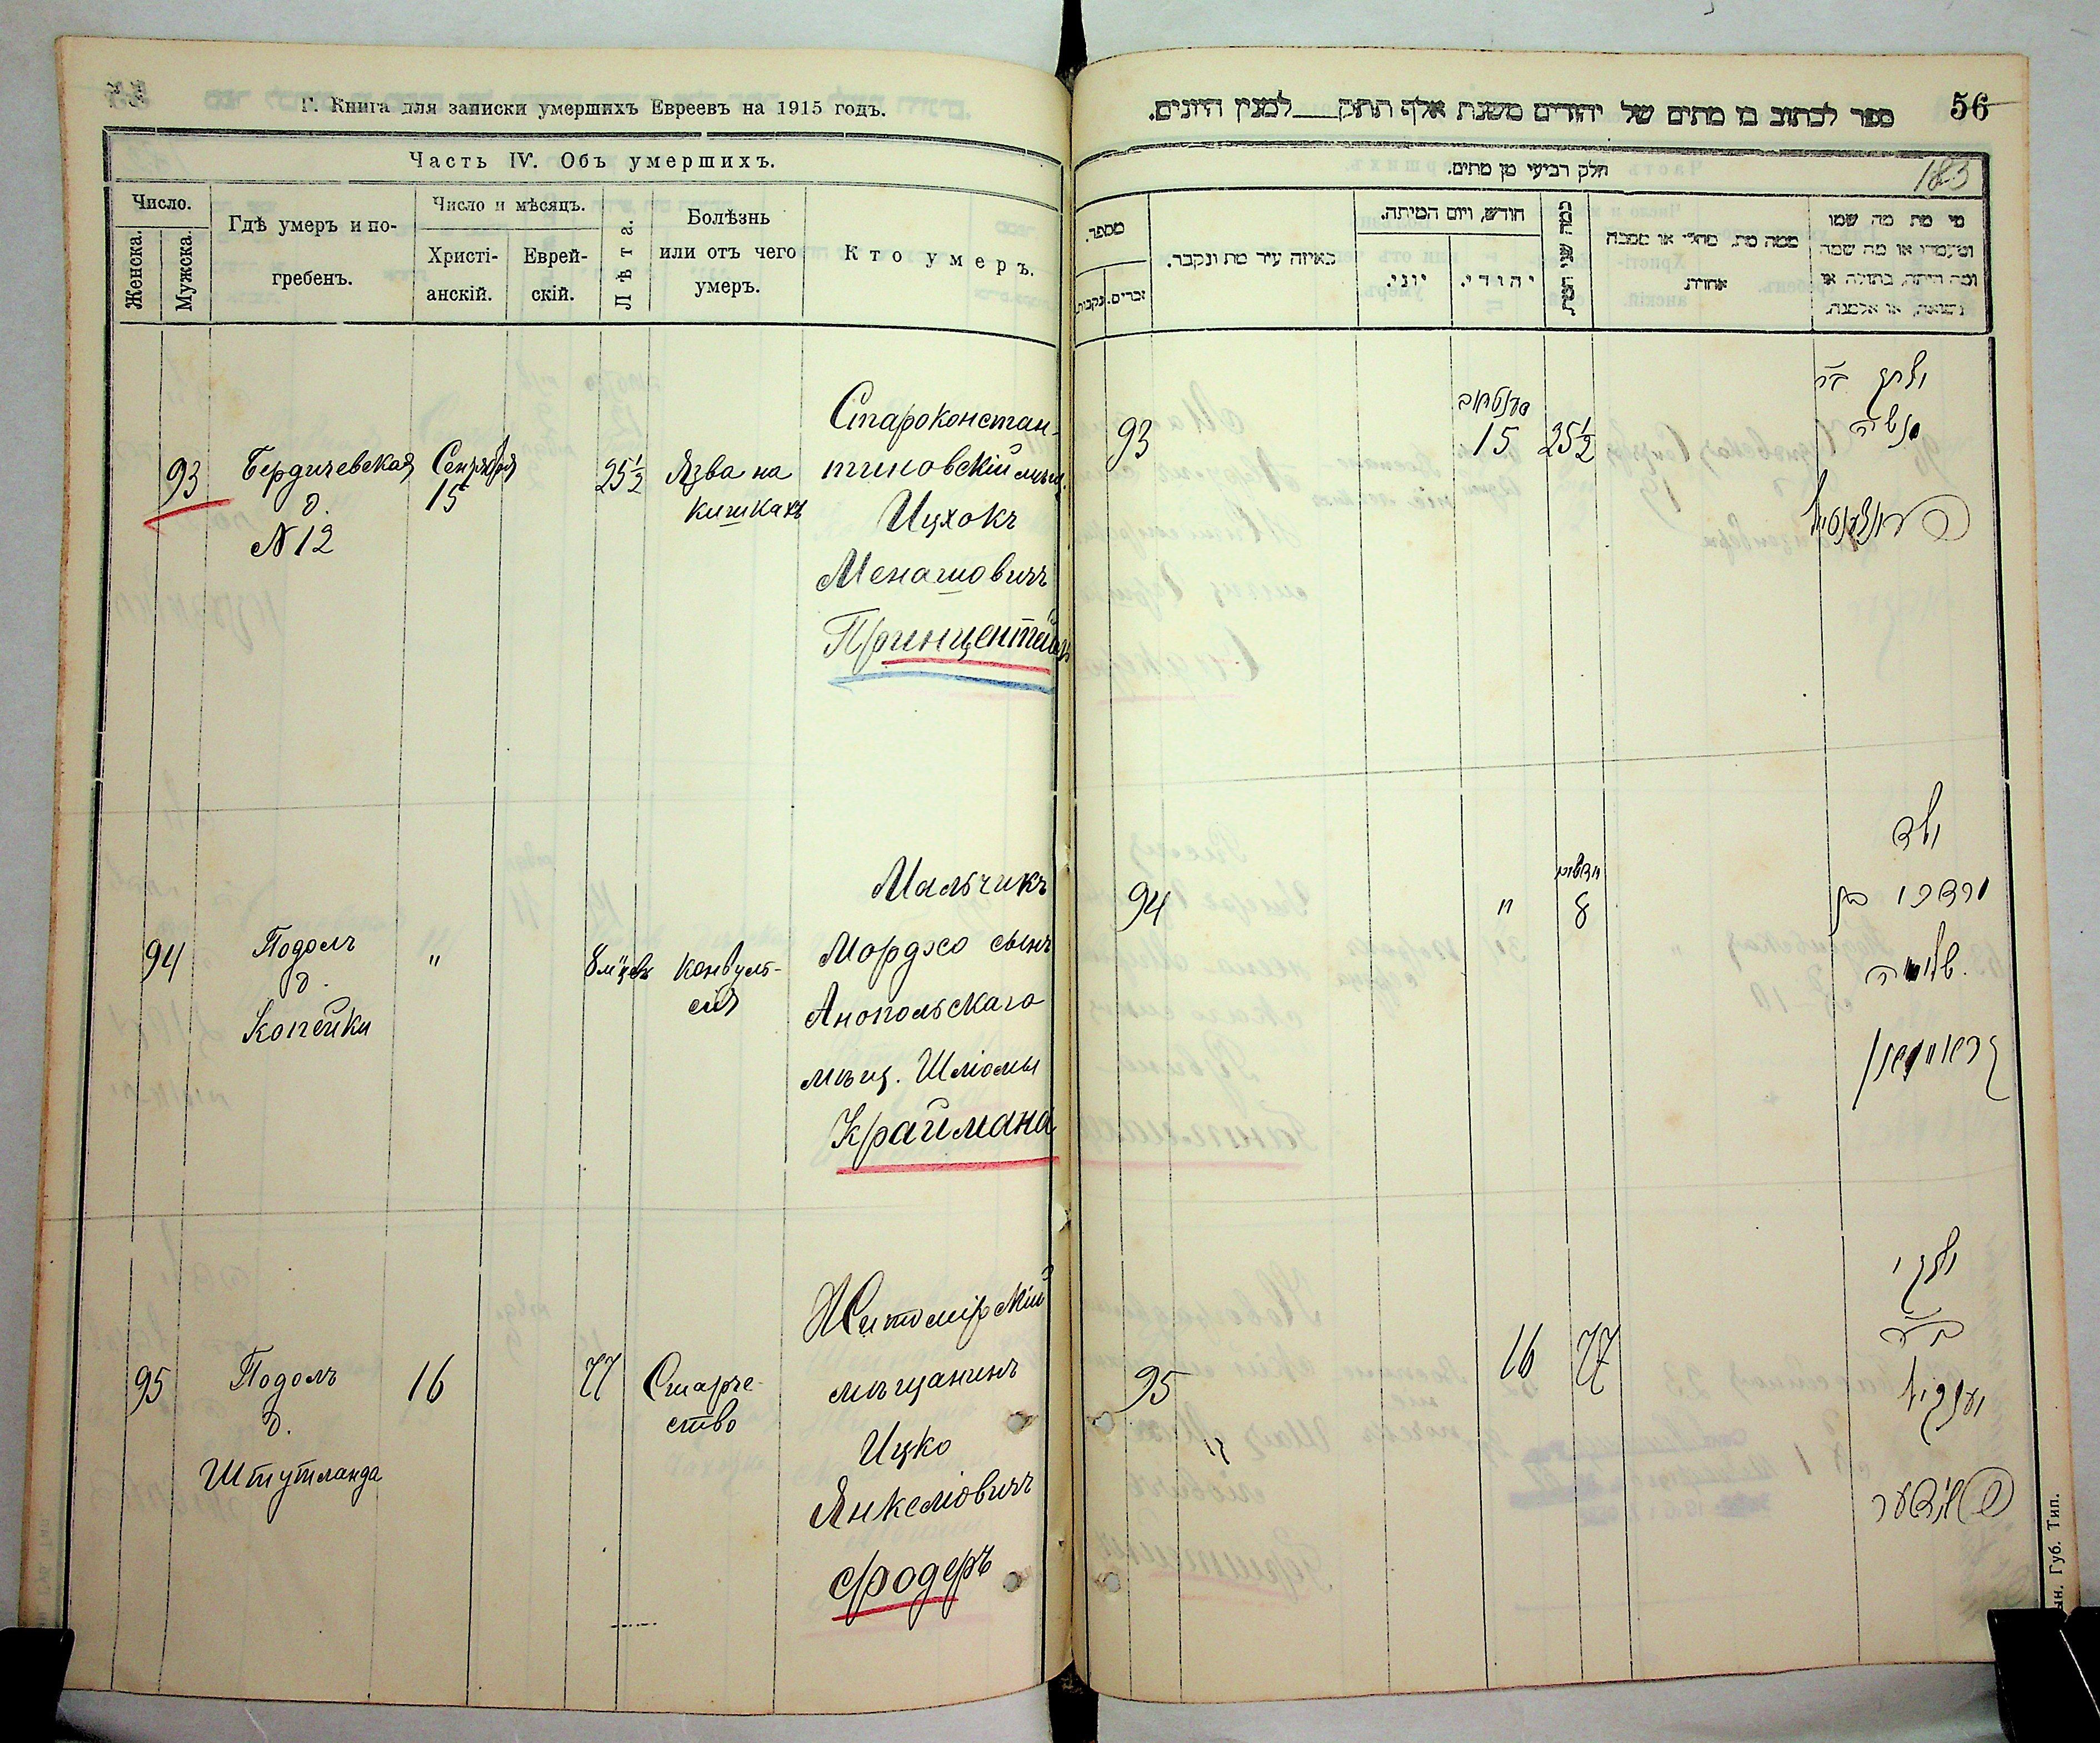 Г. Книга для записки умершихъ Евреевъ на 1915 годъ.
Часть IV. Объ умершихъ.
Число.
Женска.
Мужска.
Гдѣ умеръ и по-
гребенъ.
Число и мѣсяцъ.
Христі-
анскій.
Еврей-
скій.
Лѣта.
Болѣзнь
или отъ чего
умеръ.
Кто умеръ.
93
Бердичевская
д.
№ 12
Сентября
15
25½
Язва на
кишкахъ
Староконстан-
тиновскій мѣщ.
Ицхокъ
Менашовичъ
94
Подолъ
д.
Копейки
"
8 м'цевъ
конвуль-
сія
Мальчикъ
Мордхо сынъ
Анопольскаго
мѣщ. Шліомы
Краймана
95
Подолъ
д.
Штутланда
16
77
Старче-
ство
Житомірскій
мѣщанинъ
Ицко
Янкеліовичъ
Фодеръ
56
ספר לכתוב בו מתים של יהודים משנת אלף תתק למנין היונים.
183
חלק רביעי מן מתים.
מספר.
נקבות.
זכרים.
באיזה עיר מת ונקבר.
חודש, ויום המיתה.
יוני.
יהודי.
כמה שני המת
ממה מת, מחלי או מסבה
אחרת.
מי מת מה שמו
ומעמדו או מה שמה
ומה היתה, בתולה או
נשואה, או אלמנה.
93
15
25½
94
"
8
ילד
מרדכי בן
95
16
77
יאנקיל
ын. Губ. Тип.